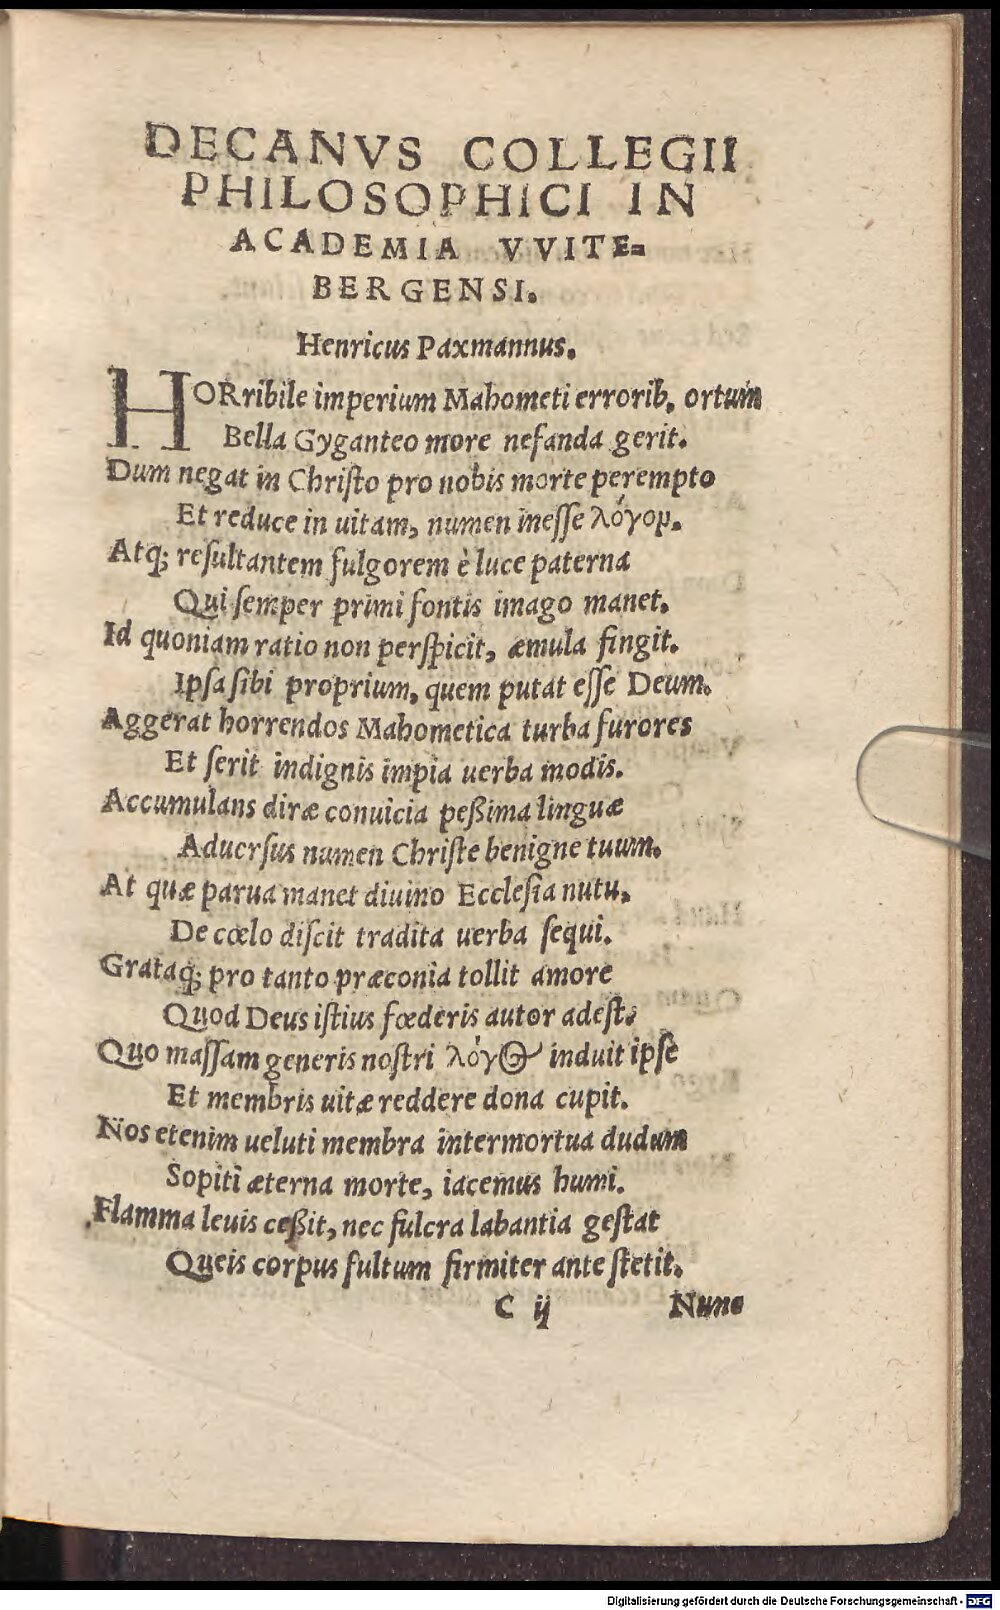 DECANVS COLLEGII
PHILOSOPHICI IN
ACADEMIA VVITE=
BERGENSI.
Henricus Paxmannus.
HORribile imperium Mahometi errorib. ortum
Bella Gyganteo more nefanda gerit.
Dum negat in Chriſto pro nobis morte perempto
Et reduce in uitam, numen ineſſe λόγομ.
Atq; reſultantem fulgorem è luce paterna
Qui ſemper primi fontis imago manet.
Id quoniam ratio non perſpicit, æmula fingit.
Ipſa ſibi proprium, quem putat eſſe Deum.
Aggerat horrendos Mahometica turba furores
Et ſerit indignis impia uerba modis.
Accumulans diræ conuicia peßima linguæ
Aduerſus numen Chriſte benigne tuum.
At quæ parua manet diuino Eccleſia nutu.
De cœlo diſcit tradita uerba ſequi.
Grataq; pro tanto præconia tollit amore
Quod Deus iſtius fœderis autor adeſt.
Quo maſſam generis noſtri λόγΘ induit ipſe
Et membris uitæ reddere dona cupit.
Nos etenim ueluti membra intermortua dudum
Sopiti æterna morte, iacemus humi.
Flamma leuis ceßit, nec fulcra labantia geſtat
Queis corpus fultum firmiter ante ſtetit.
C ij Nunc
Digitalisierung gefördert durch die Deutsche Forschungsgemeinschaft - DFG